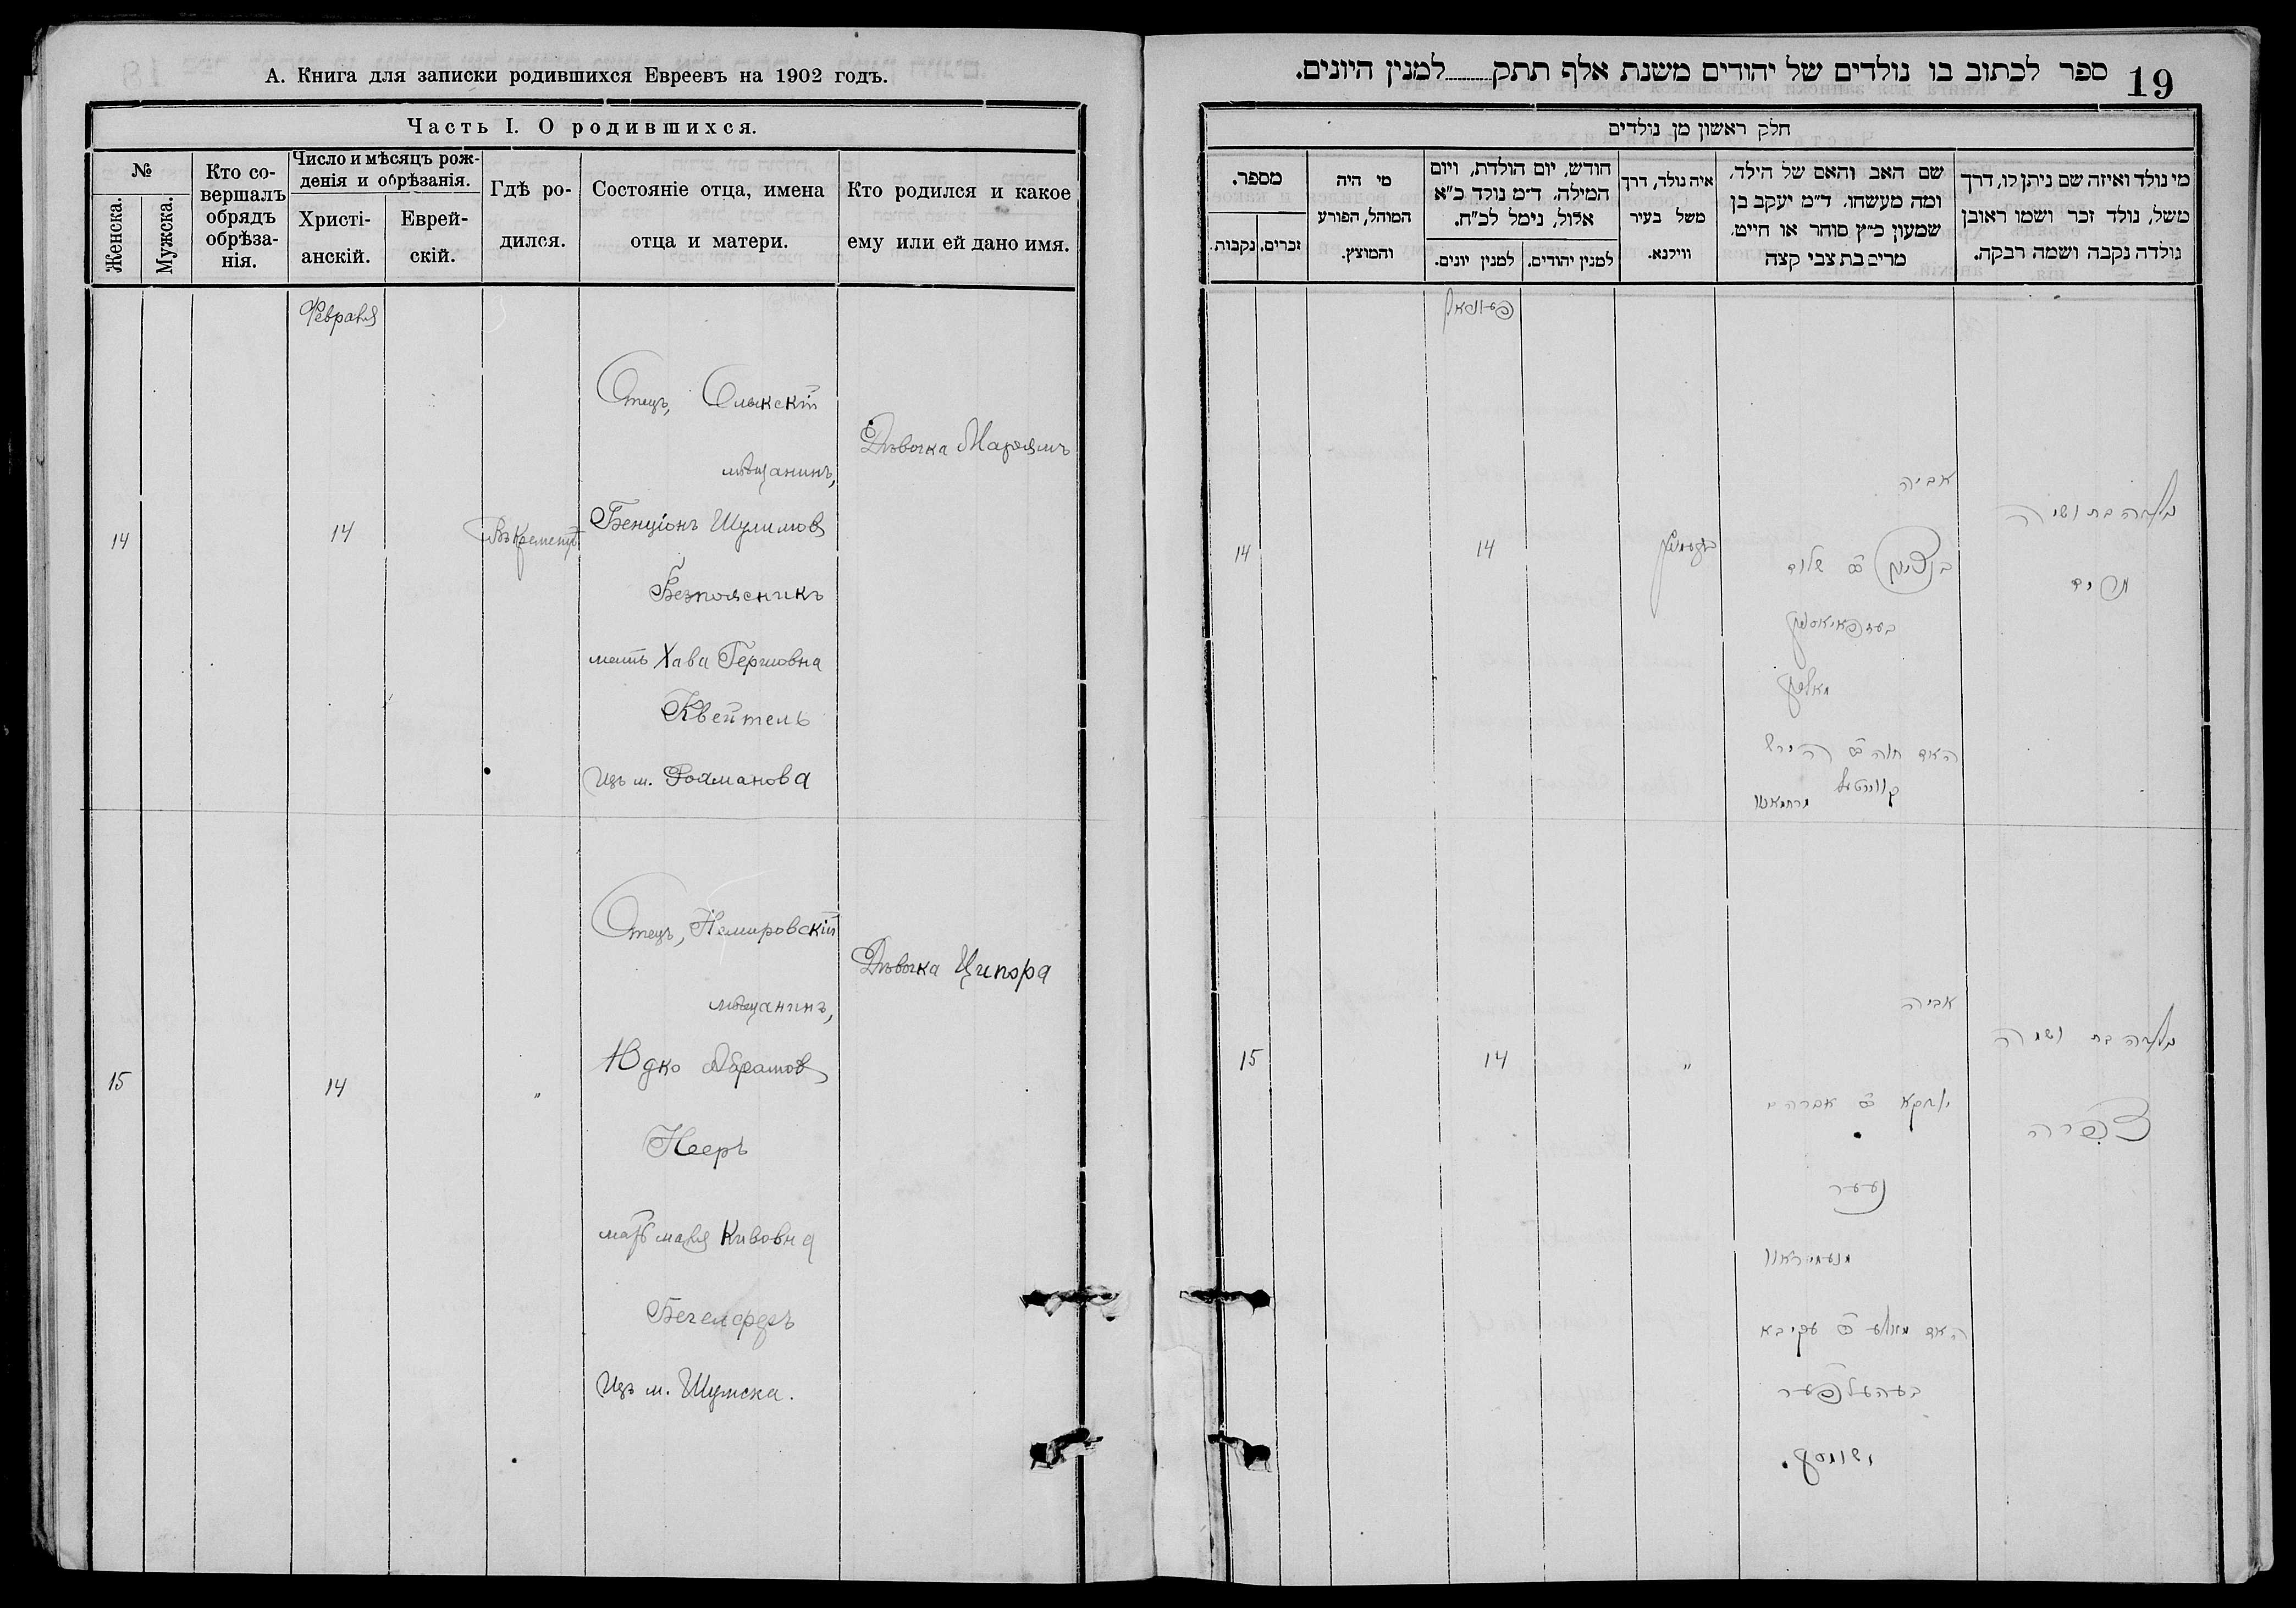 А. Книга для записки родившихся Евреевъ на 1902 годъ.
Часть I. О родившихся.
№
Женска.
Мужска.
Кто со-
вершалъ
обрядъ
обрѣза-
нія.
Число и мѣсяцъ рож-
денія и обрѣзанія.
Христі-
анскій.
Еврей-
скій.
Гдѣ ро-
дился.
Состояніе отца, имена
отца и матери.
Кто родился и какое
ему или ей дано имя.
Февраля
14
14
Въ Кременцѣ
Отецъ, Олыкскій
мѣщанинъ,
Бенціонъ Шулимовъ
Безпоясникъ
мать Хава Гершовна
Квейтель
изъ м.
Дѣвочка Марьямъ
15
14
"
Отецъ, Немировскій
мѣщанинъ,
Юдко Абрамовъ
Нееръ
мать Маля Кивовна
Бегелферъ
изъ м. Шумска.
Дѣвочка Ципора
19
ספר לכתוב בו נולדים של יהודים משנת אלף תתק למנין היונים.
חלק ראשון מן נולדים
מי נולד ואיזה שם ניתן לו, דרך
משל, נולד זכר ושמו ראובן
נולדה נקבה ושמה רבקה.
שם האב והאם של הילד,
ומה מעשהו. ד״מ יעקב בן
שמעון כ״ץ סוחר או חייט.
מרים בת צבי קצה
איה נולד, דרך
משל בעיר
ווילנא.
חודש, יום הולדת, ויום
המילה. ד״מ נולד כ״א
אלול, נימל לכ״ח.
למנין יהודים.
למנין יונים.
מי היה
המוהל, הפורע
והמוצץ.
מספר.
זכרים.
נקבות
נולדה בת ושמה
מרים
אביה
בן ציון שלום
האם חוה הירש
קווייטעל
14
14
נולדה בת ושמה
צפרה
אביה
יודקא אברהם
נער
האם מאלע עקיבא
בעהעלפער
"
14
15